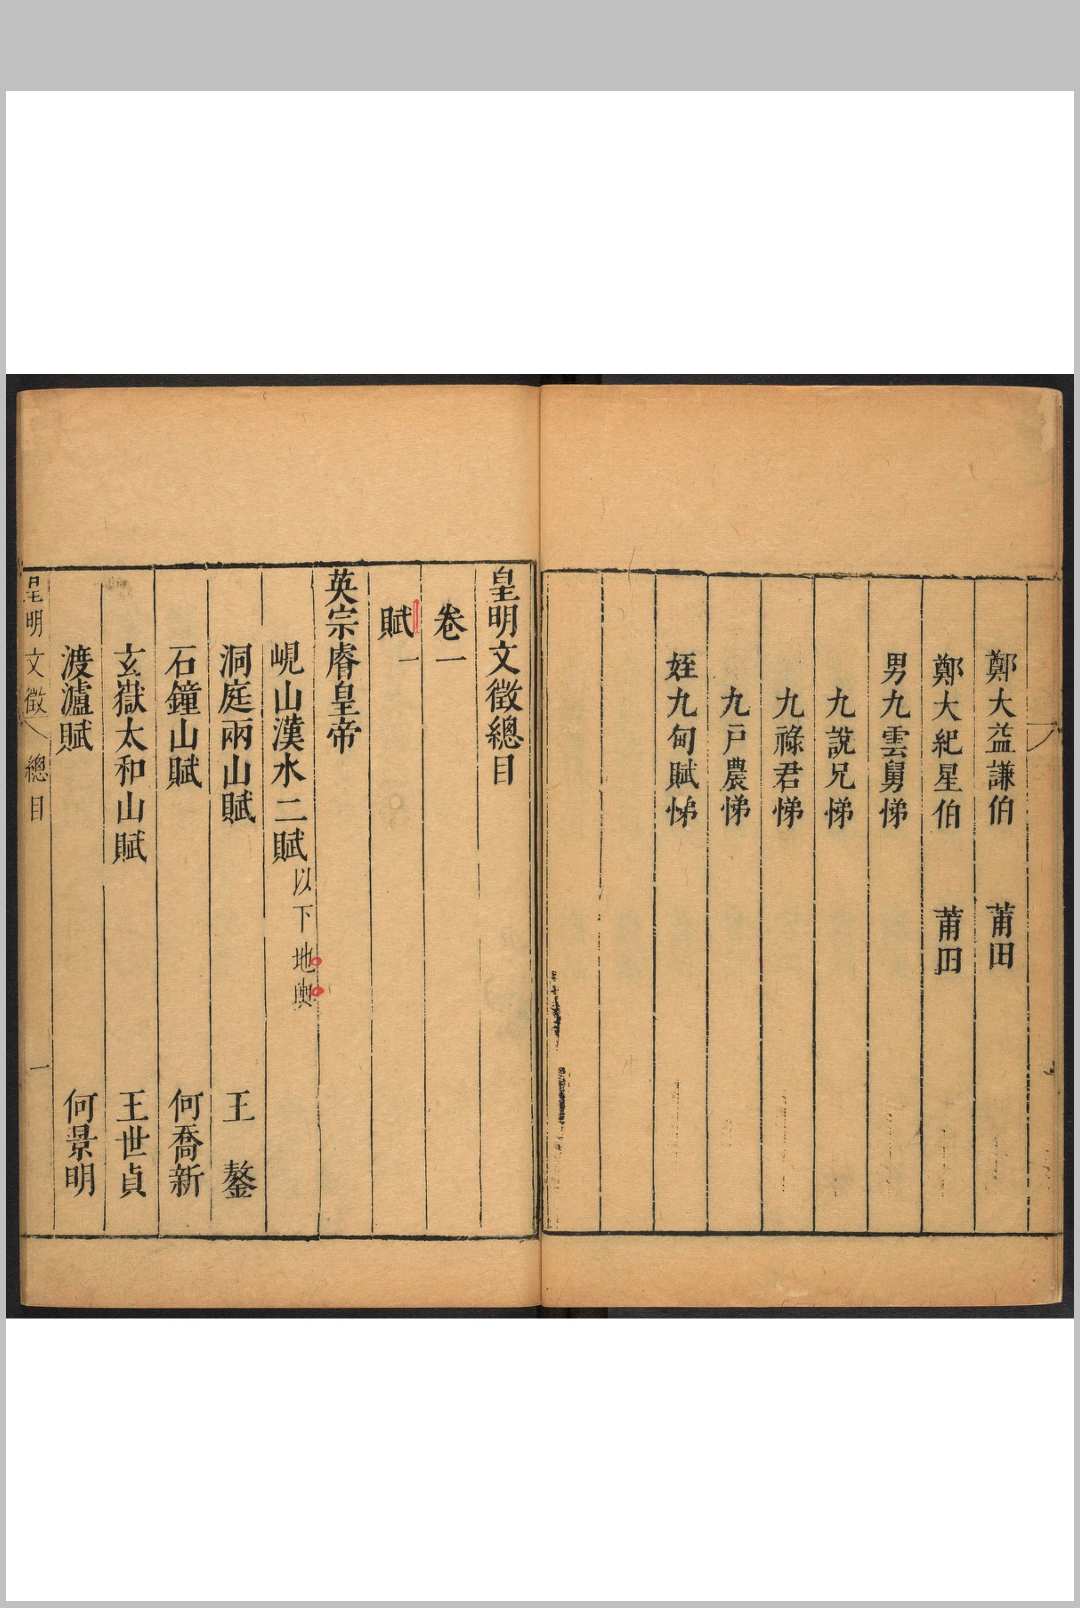 鄭大益謙伯　莆田
鄭大紀星伯　莆田
男九雲舅悌
九說兄悌
九祿君悌
九戸農悌
姪九甸賦悌
皇明文徵總目
卷一
賦一
英宗睿皇帝
峴山漢水二賦以下地輿
洞庭兩山賦　王鏊
石鐘山賦　何喬新
玄嶽太和山賦　王世貞
渡瀘賦　何景明
皇明文徵　總目　一